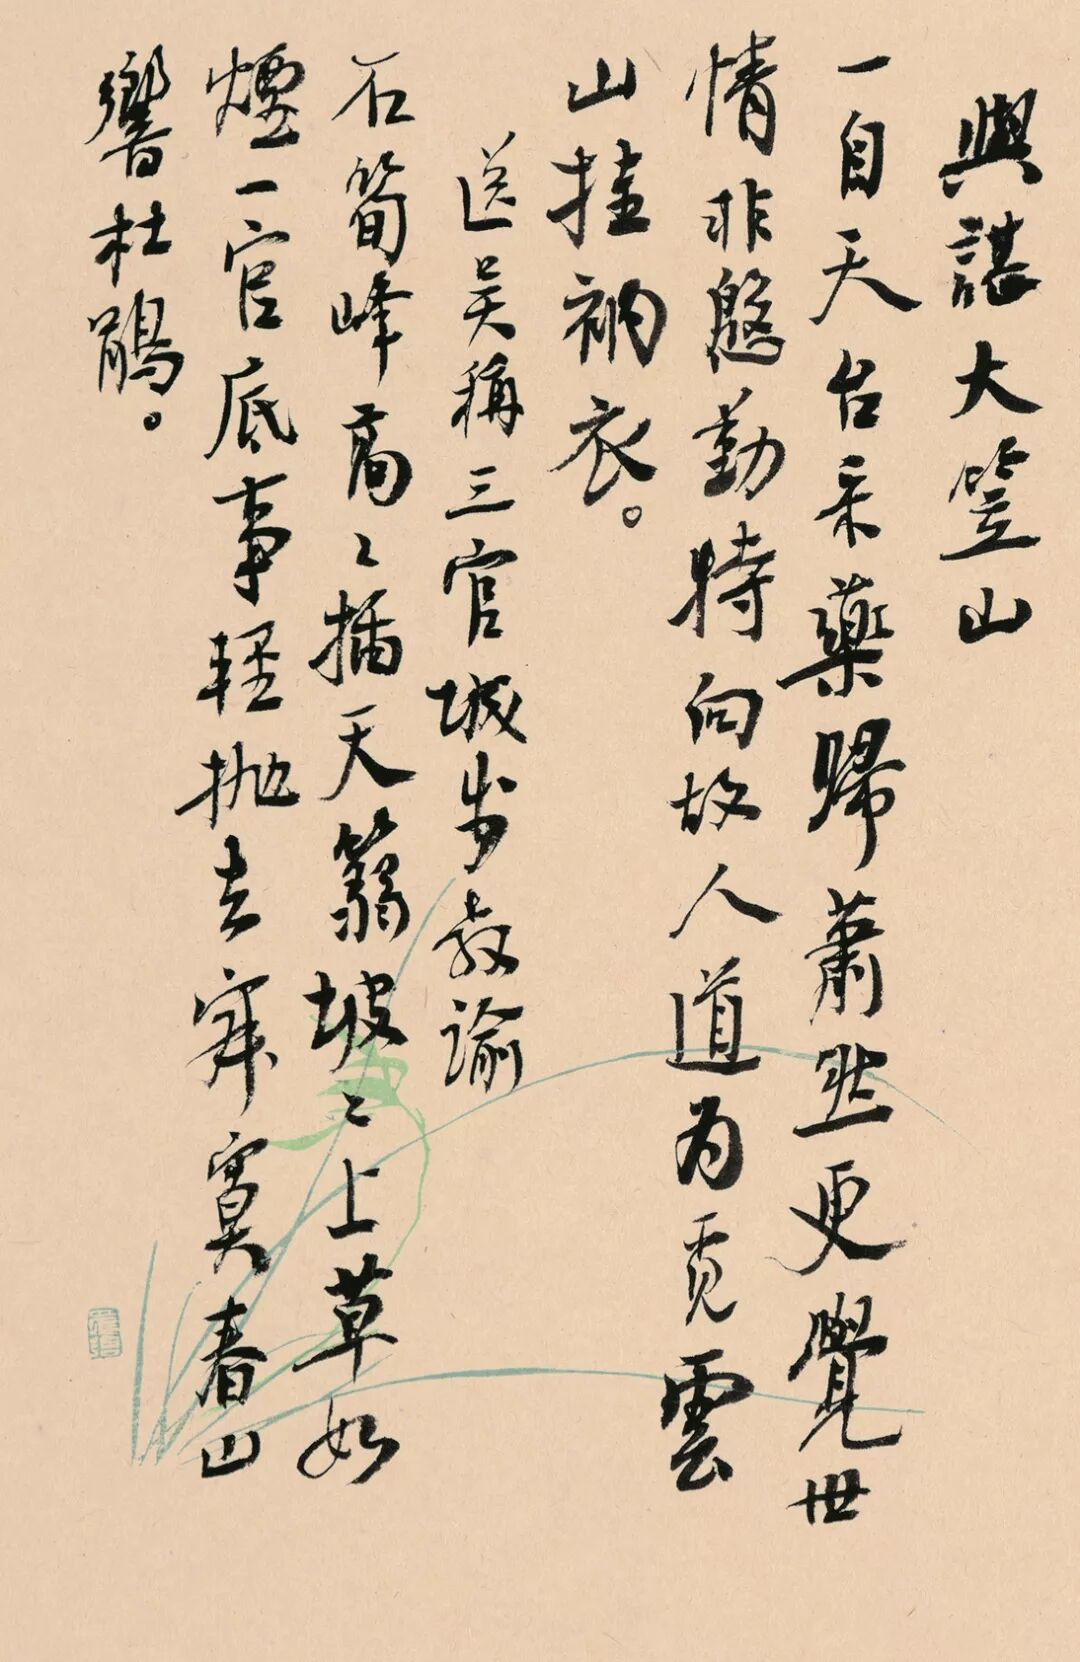 與諶大笠山
一自天台采藥歸蕭然更覺世
情非慇勤特向故人道为覓雲
山挂衲衣。
送吴稱三官城步教諭
石筍峰高〻插天蓊坡〻上草如
煙一官底事輕拋去寂寞春山
響杜鵑。